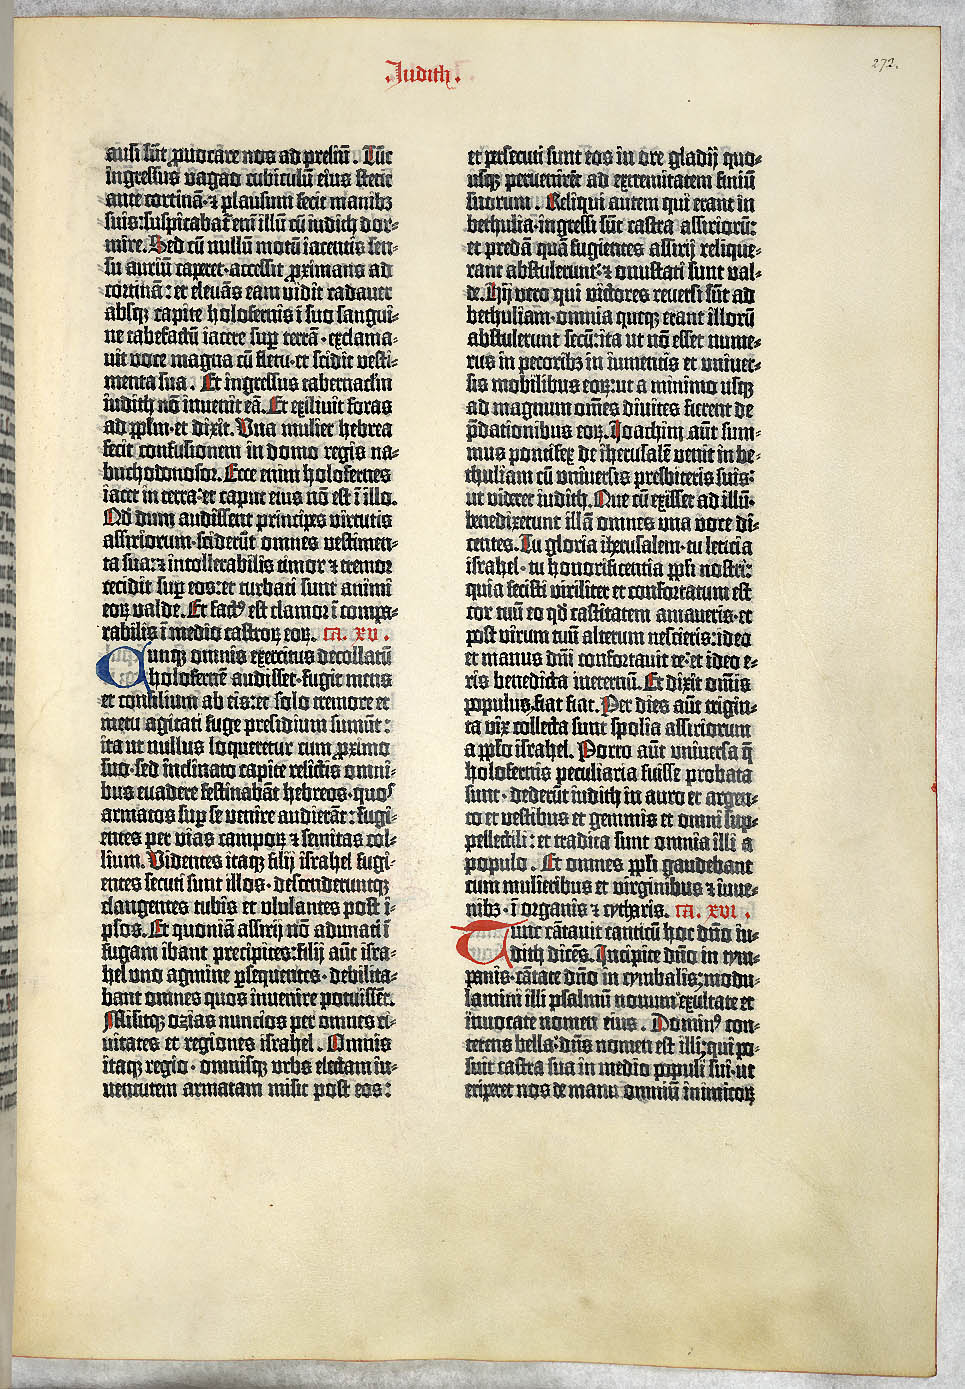 .Judith.
272.
ausi sūt ꝓuocare nos ad preliū. Tūc
ingressus vagao cubiculū eius stetit
ante cortinā· ⁊ plausum fecit manibꝫ
suis: suspicabat᷑ em̄ illū cū iudith dor-
mire. Sed cū nullū motū iacentis sen-
su auriū caperet· accessit ꝓximans ad
cortinā: et eleuās eam vidit cadauer
absqꝫ capite holofernis ī suo sangui-
ne tabefactū iacere suꝑ terrā· exclama-
uit voce magna cū fletu· et scidit vesti-
menta sua. Et ingressus tabernaclm̄
iudith nō inuenit eā. Et exiliuit foras
ad pplm̄· et dixit. Una mulier hebrea
fecit confusionem in domo regis na-
buchodonosor. Ecce enim holofernes
iacet in terra: et caput eius nō est ī illo.
Qd dum audissent principes virtutis
assiriorum· sciderūt omnes vestimen-
ta sua: ⁊ intollerabilis timor ⁊ tremor
cecidit suꝑ eos: et turbati sunt animi
eoꝝ valde. Et factꝰ est clamor ī compa-
rabilis ī medio castroꝝ eoꝝ. ca. xv.
Cunqꝫ omnis exercitus decollatū
holofernē audisset· fugit mens
et consilium ab eis: et solo tremore et
metu agitati fuge presidium sumūt:
ita ut nullus loqueretur cum ꝓximo
suo· sed inclinato capite relictis omni-
bus euadere festinabāt hebreos· quos
armatos suꝑ se venire audierāt: fugi-
entes per vias campoꝝ ⁊ semitas col-
lium. Videntes itaqꝫ filij israhel fugi-
entes secuti sunt illos· descenderuntqꝫ
clangentes tubis et ululantes post i-
psos. Et quoniā assirij nō adunati ī
fugam ibant precipites: filij aūt isra-
hel uno agmine ꝑsequentes· debilita-
bant omnes quos inuenire potuissēt.
Misitqꝫ ozias nuncios per omnes ci-
uitates et regiones israhel. Omnis
itaqꝫ regio· omnisqꝫ urbs electam iu-
uentutem armatam misit post eos:
et ꝑsecuti sunt eos in ore gladij quo-
usqꝫ peruenirēt ad extremitatem finiū
suorum. Reliqui autem qui erant in
bethulia· ingressi sūt castra assiriorū:
et predā quā fugientes assirij relique-
rant abstulerunt: ⁊ onustati sunt val-
de. Hij vero qui victores reuersi sūt ad
bethuliam· omnia queqꝫ erant illorū
abstulerunt secū: ita ut nō esset nume-
rus in pecoribꝫ in iumentis et uniuer-
sis mobilibus eoꝝ: ut a minimo usqꝫ
ad magnum om̄es diuites fierent de
p̄dationibus eoꝝ. Joachim aūt sum-
mus pontifex de iherusalē venit in be-
thuliam cū uniuersis presbiteris suis:
ut videret iudith. Que cū exisset ad illū·
benedixerunt illā omnes una voce di-
centes. Tu gloria iherusalem· tu leticia
israhel· tu honorificentia ppli nostri:
quia fecisti viriliter et confortatum est
cor tuū eo qd castitatem amaueris· et
post virum tuū alterum nescieris: ideo
et manus dn̄i confortauit te: et ideo e-
ris benedicta ineternū. Et dixit om̄is
populus. fiat fiat. Per dies aūt trigin-
ta vix collecta sunt spolia assiriorum
a pplo israhel. Porro aūt uniuersa q̄
holofernis peculiaria fuisse probata
sunt· dederūt iudith in auro et argen-
to et vestibus et gemmis et omni sup-
pellectili: et tradita sunt omnia illi a
populo. Et omnes ppli gaudebant
cum mulieribus et virginibus ⁊ iuue-
nibꝫ· ī organis ⁊ cytharis. ca. xvi.
Tunc cātauit canticū hoc dn̄o iu-
dith dicēs. Incipite dn̄o in tym-
panis· cātate dn̄o in cymbalis; modu-
lamini illi psalmū nouum exultate et
inuocate nomen eius. Dominꝰ con-
terens bella: dn̄s nomen est illi; qui po-
suit castra sua in medio populi sui· ut
eriperet nos de manu omniū inimicoꝝ